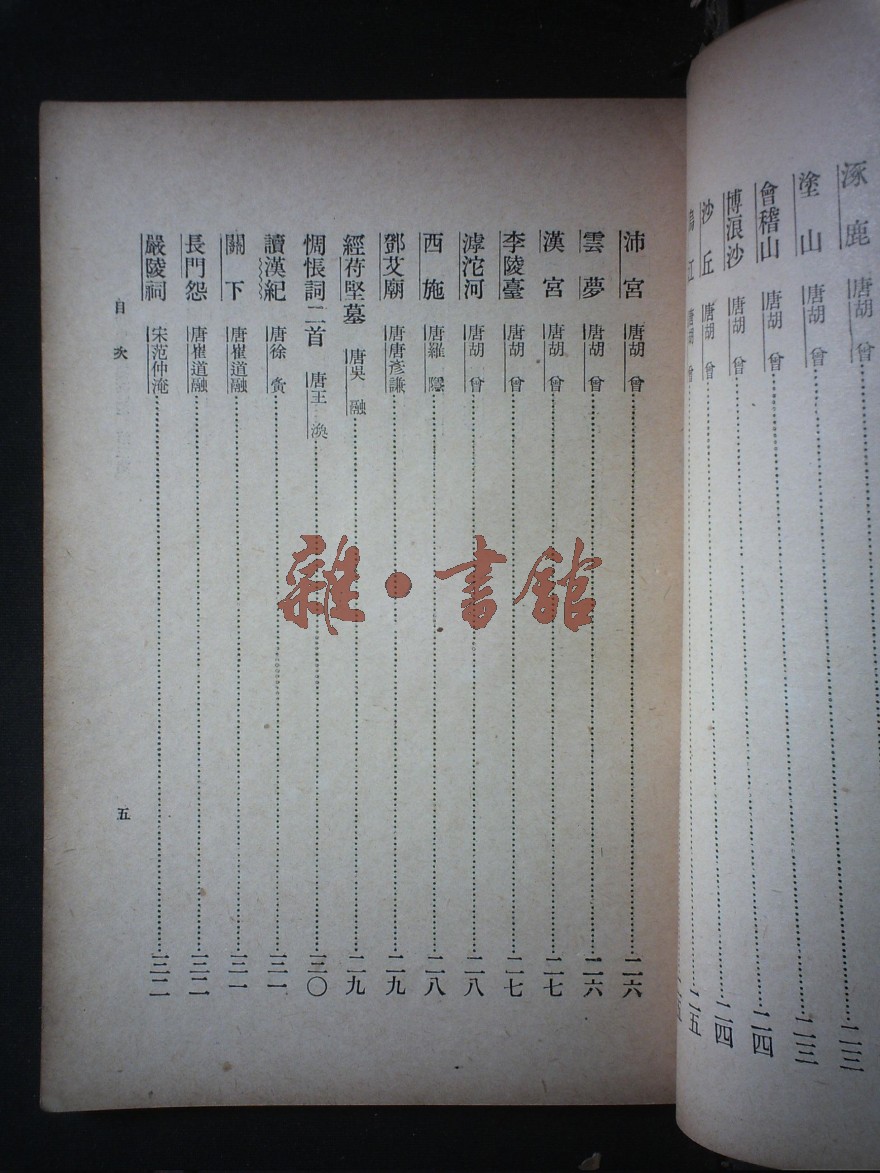 涿鹿 唐胡曾 二三
塗山 唐胡曾 二三
會稽山 唐胡曾 二四
博浪沙 唐胡曾 二四
沙丘 唐胡曾 二五
江 唐胡曾 二五
沛宮 唐胡曾 二六
雲夢 唐胡曾 二六
漢宮 唐胡曾 二七
李陵臺 唐胡曾 二七
滹沱河 唐胡曾 二八
西施 唐羅隱 二八
鄧艾廟 唐唐彥謙 二九
經苻堅墓 唐吳融 二九
惆悵詞二首 唐王渙 三〇
讀漢紀 唐徐夤 三一
關下 唐崔道融 三一
長門怨 唐崔道融 三二
嚴陵祠 宋范仲淹 三二
目次
五
雜·書館